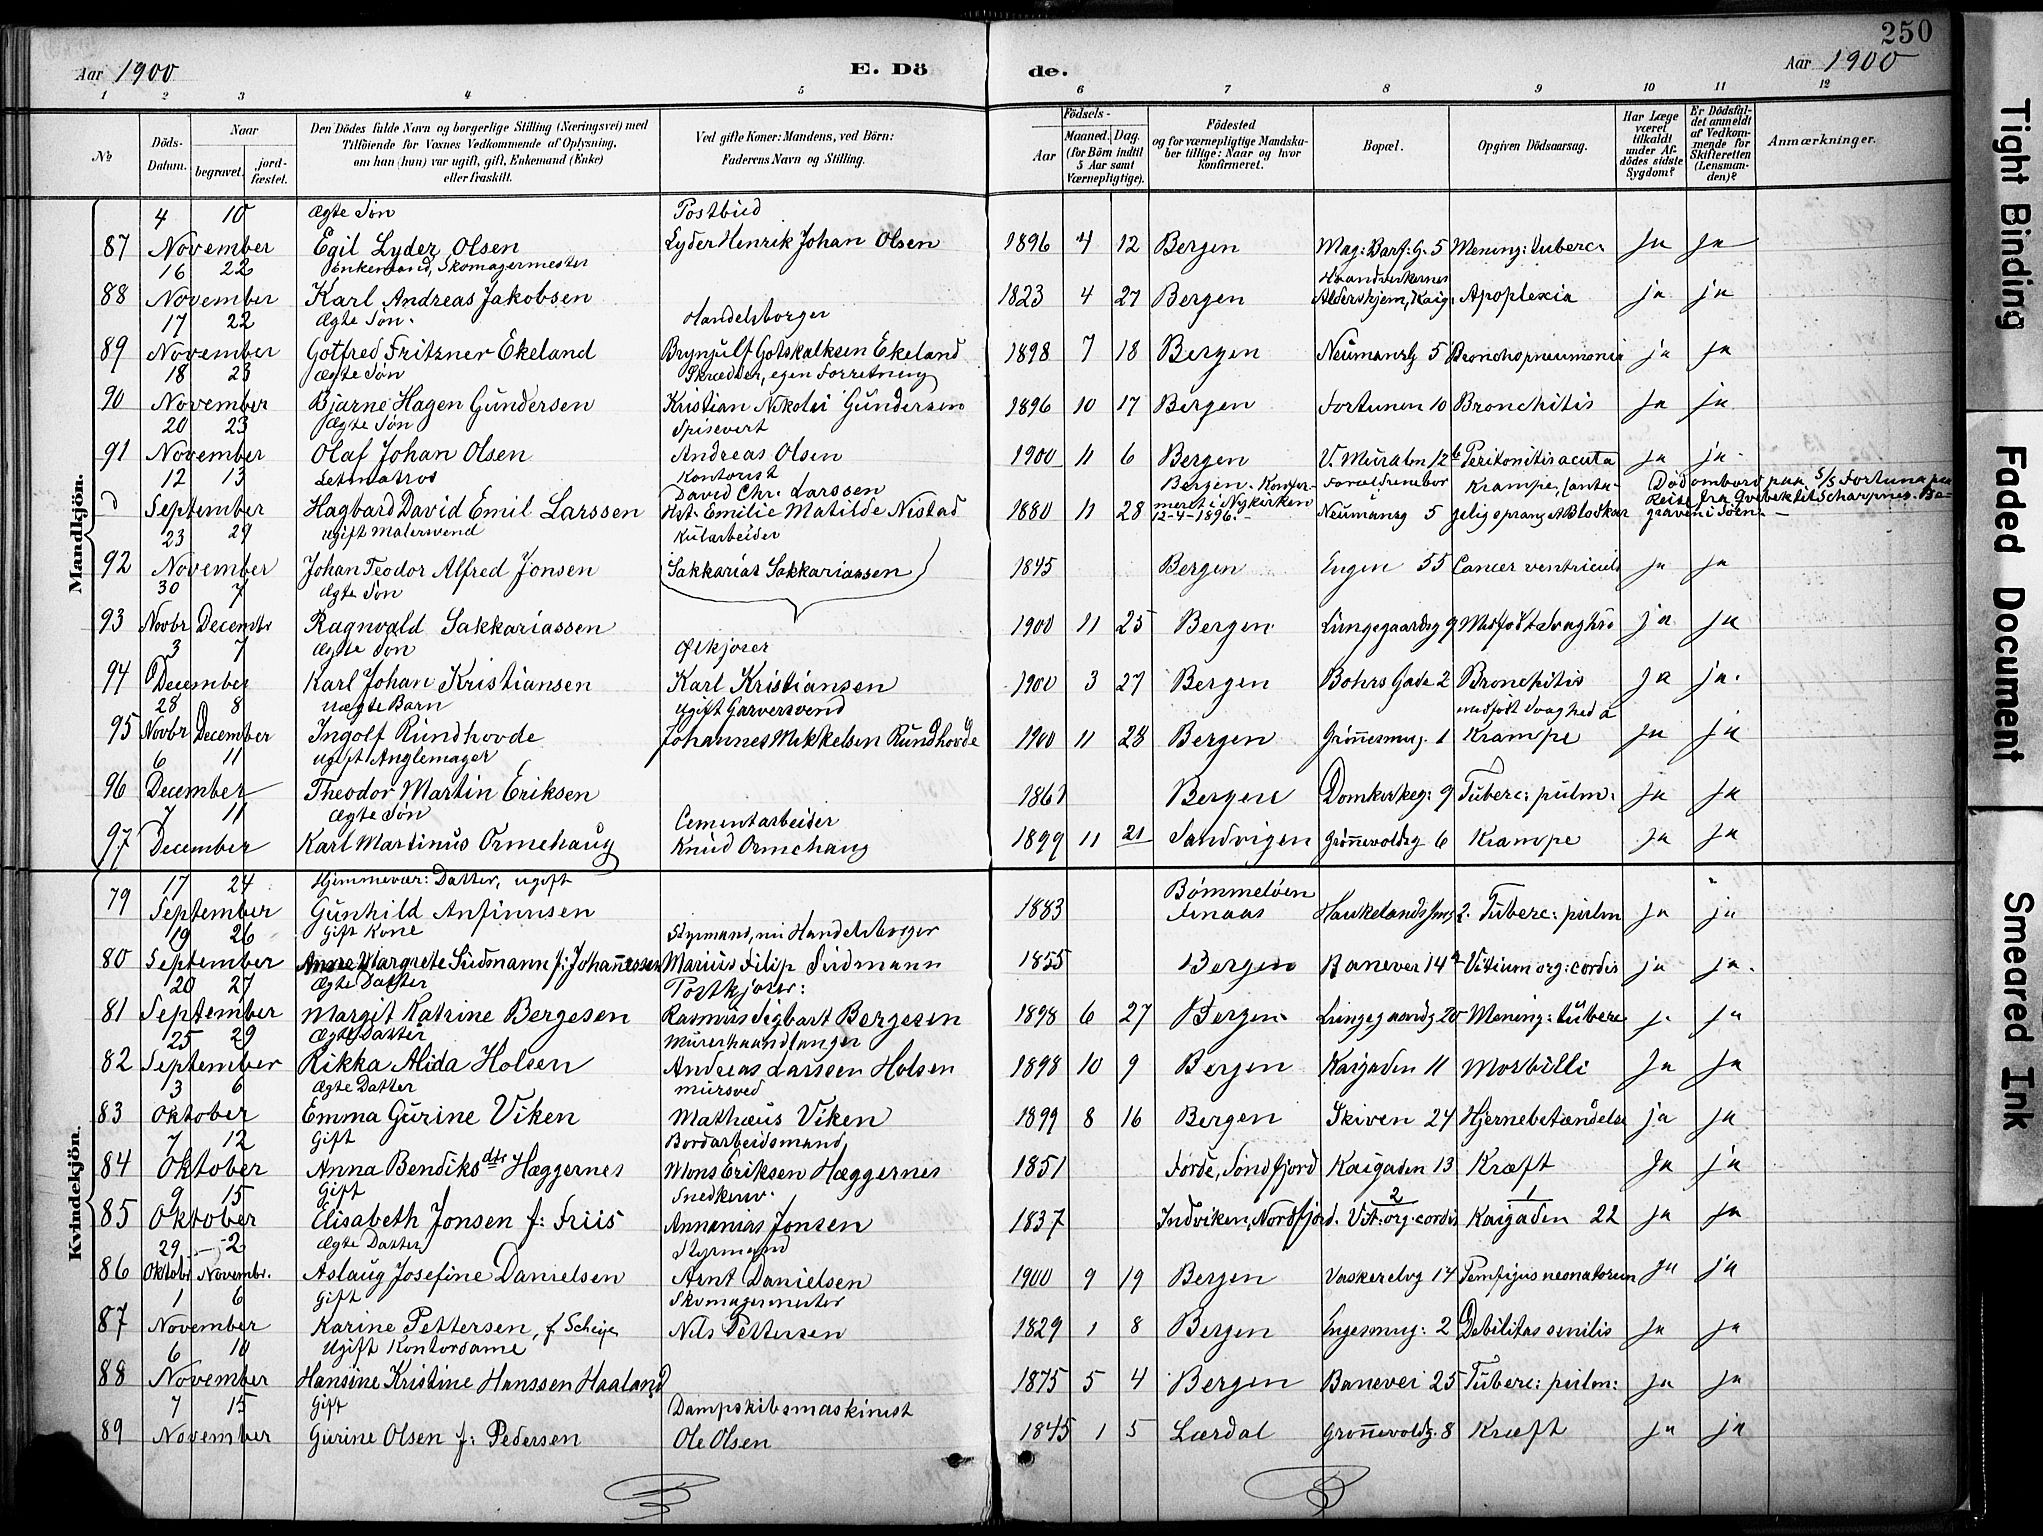 250
Aar 1900
E. Dö
de.
Aar 1900
1 2 3 4 5 6 7 8 9 10 11 12
№
Döds-Datum.
Naar
begravet.
jord-fæstet.
Den Dödes fulde Navn og borgerlige Stilling (Næringsvei) med
Tilföiende for Voxnes Vedkommende af Oplysning,
om han (hun) var ugift, gift, Enkemand (Enke)
eller fraskilt.
Ved gifte Koner: Mandens, ved Börn:
Faderens Navn og Stilling.
Födsels-
Aar
Maaned.
Dag.
(for Börn indtil
5 Aar samt
Værnepligtige).
Födested
og for værnepligtige Mandska-
ber tillige: Naar og hvor
konfirmeret.
Bopæl.
Opgiven Dödsaarsag.
Har Læge
været
tilkaldt
under Af-
dödes sidste
Sygdom?
Er Dödsfal-
det anmeldt
af Vedkom-
mende for
Skifteretten
(Lensman-
den)?
Anmærkninger.
Mandkjön.
4 10 Ægte Søn Postbud
87 November Egil Lyder Olsen Lyder Henrik Johan Olsen 1896 4 12 Bergen Mag: Barf: G. 5 Mening: tuberc: Ja Ja
16 22 Enkemand, Skomagermester Haandverkernes
88 November Karl Andreas Jakobsen 1823 4 27 Bergen Aldershjem, Kaig: Apoplexia ja ja
17 22 Ægte Søn. Handelsborger
89 November Gotfred Fritzner Ekeland Brynjulf Gotskalksen Ekeland 1898 7 18 Bergen Neumansg 5 Bronchopneumonia ja ja
18 23 Ægte Søn Skrædder, egen Forretning
90 November Bjarne Hagen Gundersen Kristian Nikolai Gundersen 1896 10 17 Bergen Fortunen 10 Bronchitis Ja ja
20 23 Ægte Søn Spisevert
91 November Olaf Johan Olsen Andreas Olsen 1900 11 6 Bergen V. Muralm 12 b Peritonitis acuta ja ja.
12 13 Letmatros Kontorist
David Chr. Larssen
Bergen. Konfir-
meret i Nykirken
12-4-1896.
Forældrenebor
Krampe, (antagelig sprang et Blodkar
Død ombord paa S/S Fortuna paa
September Hagbard David Emil Larssen Hst. Emilie Matilde Nistad 1880 11 28 Neumansg 5
graven i Søen.
23 29 ugift Malersvend Kularbeider
92 November Johan Teodor Alfred Jonsen Sakkarias Sakkariassen 1845 Bergen Engen 55 Cancer ventriculi ja ja
30 7 Ægte Søn
93 Novbr Decembr Ragnvald Sakkariassen 1900 11 25 Bergen Lungegaardsg 9 Medfødt Svaghed ja ja
3 7 Ægte Søn Ølkjører
94 December Karl Johan Kristiansen Karl Kristiansen 1900 3 27 Bergen Bohrs Gade 2 Bronchitis ja ja.
28 8 Uægte Barn Ugift Garversvend medfødt Svaghed a
95 Novbr December Ingolf Rundhovde Johannes Mikkelsen Rundhovde 1900 11 28 Bergen Grønnesmug. 1 Krampe ja ja
6 11 ugift Anglemager
96 December Theodor Martin Eriksen 1861 Bergen Domkirkeg: 9 Tuberc: pulm: ja ja
7 11 Ægte Søn Cementarbeider
97 December Karl Martinus Ormehaug Knud Ormehaug 1899 11 21 Sandvigen Grønnevoldsg 6 Krampe ja ja
Kvindekjön.
17 24 Hjemmevær: Datter, ugift Bømmeløen
79 September Gunhild Anfinnsen 1883 Finaas Haukelandssmug 2. Tuberc: pulm ja ja
19 26 Gift Kone Styrmand, nu Handelsborger
80 September Anne Margrete Sudmann f: Johannessen Marius Filip Sudmann 1855 Bergen Banevei 14 a Vitium org: cordis ja ja.
20 27 Ægte Datter Postkjører:
81 September Margit Katrine Bergesen Rasmus Sigbart Bergesen 1898 6 27 Bergen Lungegaardsg 25 Mening: tuberc ja ja
25 29 Ægte Datter Murerhaandlanger
82 September Rikka Alida Holsen Andreas Larssen Holsen 1898 10 9 Bergen Kaigaden 11 Morbilli Ja Ja
3 6 Ægte Datter Mursved
83 Oktober Emma Gurine Viken Mathæus Viken 1899 8 16 Bergen Skiven 24 Hjernebetændelse ja ja
7 12 Gift Bordarbeidsmand
84 Oktober Anna Bendiksdtr Hæggernes Mons Eriksen Hæggernes 1851 Førde, Søndfjord Kaigaden 13 Kræft Ja ja
9 15 Gift Snedkersv. 2 1
85 Oktober Elisabeth Jonsen f: Friis Annanias Jonsen 1837 Indviken, Nordfjord. Vit: org: cordis Kaigaden 22 ja ja
29 2 Ægte Datter Styrmand
86 Oktobr Novembr. Aslaug Josefine Danielsen Arnt Danielsen 1900 9 19 Bergen Vaskerelvg 14 Pemfigus neonatorum ja ja
1 6 Gift Skomagermester
87 November Karine Pettersen, f Nils Pettersen 1829 1 8 Bergen Engesmug: 2 Debilitas senilis ja ja
6 10 Ugift Kontordame
88 November Hansine Kristine Hanssen Haaland 1875 5 4 Bergen Banevei 25 Tuberc: pulm: ja ja
7 15 Gift Dampskibsmaskinist
89 November Gurine Olsen f: Pedersen Ole Olsen 1845 1 5 Lærdal Grønnevoldsg. 8 Kræft ja ja
Tight Binding
Faded Document
Smeared Ink